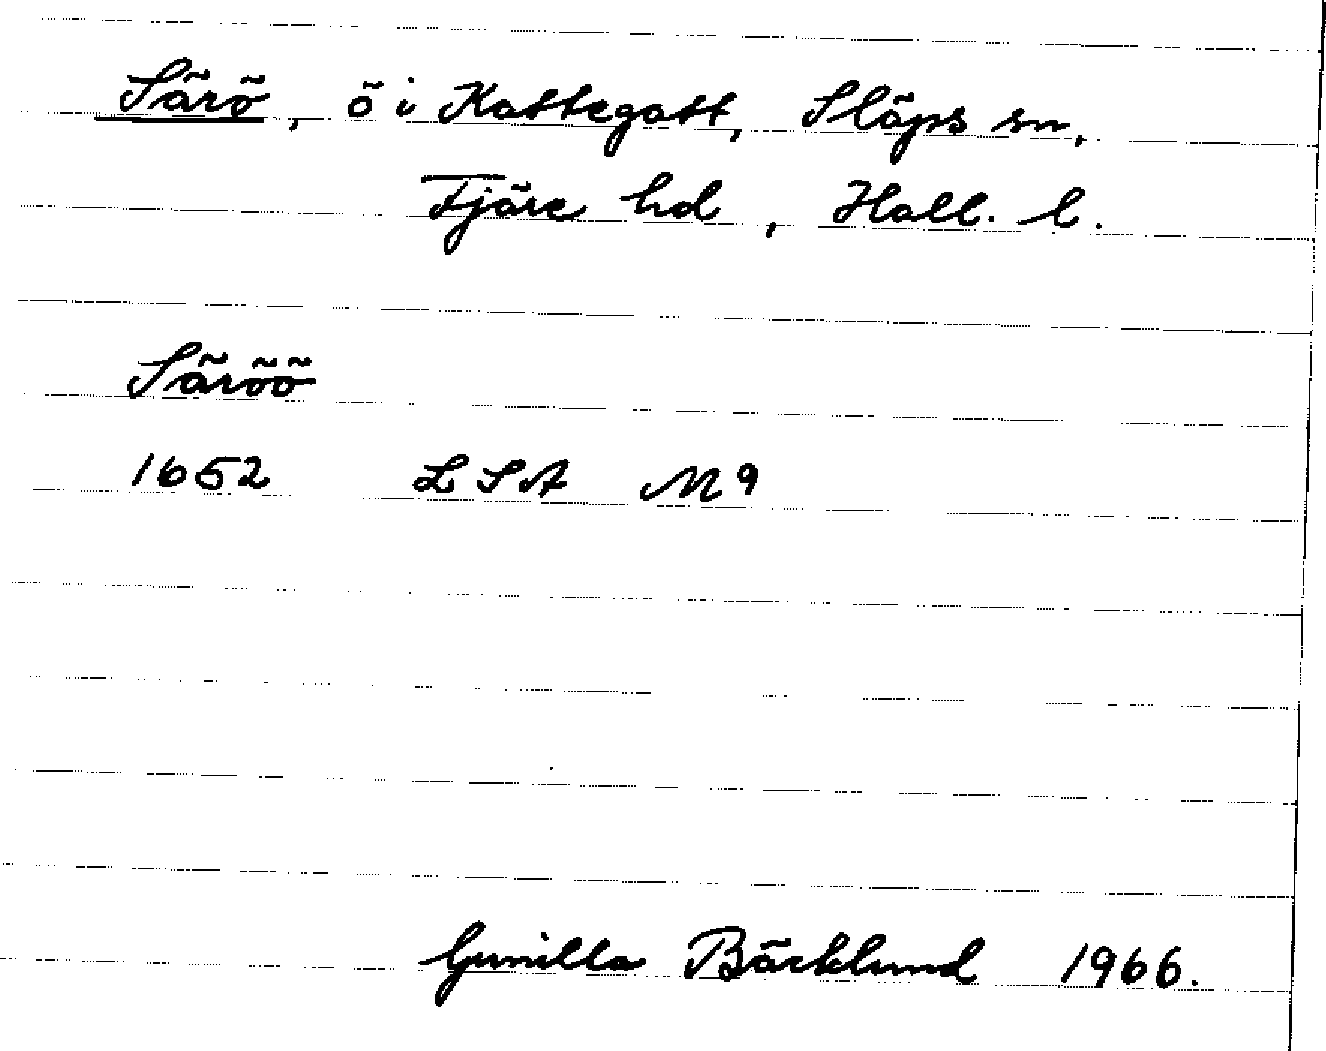 Särö, ö i Kattegatt, Släps sn,
Fjäre hd, Hall. l.
Säröö
1652 LSA M9
Gunilla Bäcklund 1966.